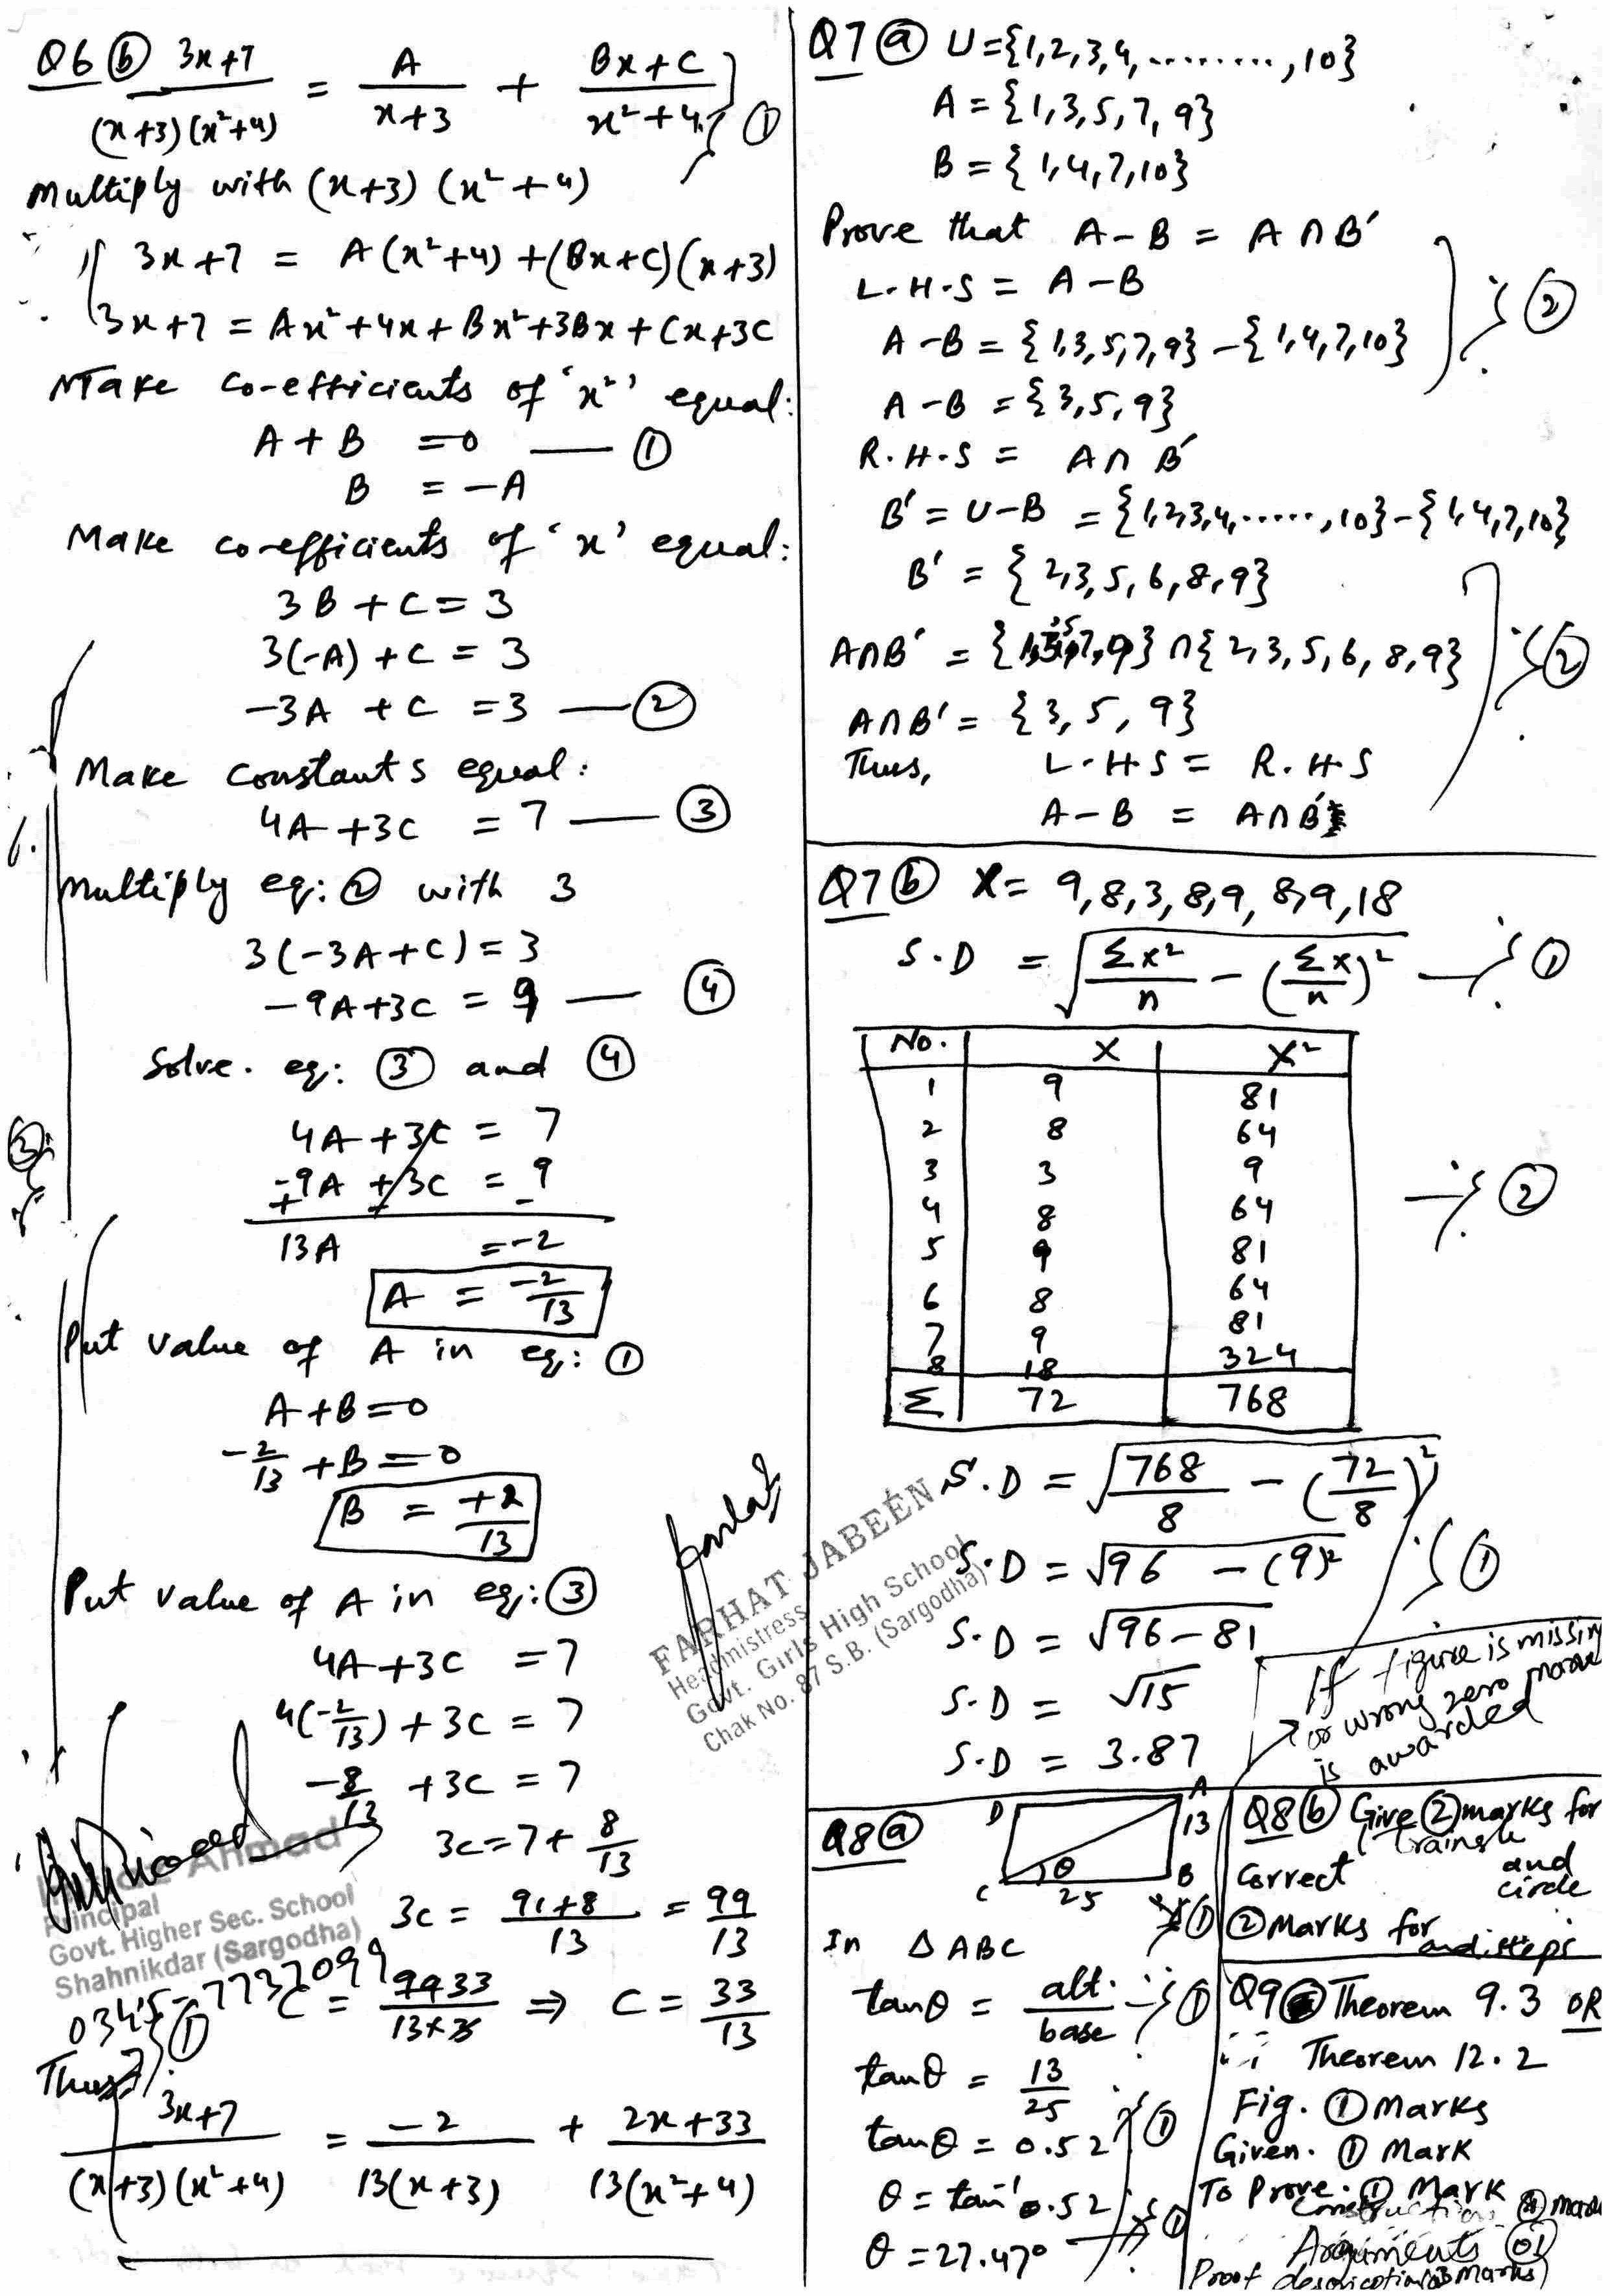 Q6 (b) 3x+7 / (x+3)(x²+4) = A / x+3 + Bx+C / x²+4 (1)
Multiply with (x+3) (x²+4)
3x+7 = A(x²+4) +(Bx+C)(x+3)
3x+7 = Ax²+4x+Bx²+3Bx+Cx+3C
Make co-efficients of 'x²' equal:
A+B =0 — (1)
B = -A
Make co-efficients of 'x' equal:
3B+C=3
3(-A)+C = 3
-3A +C =3 — (2)
Make constants equal:
4A+3C = 7 — (3)
Multiply eq: (2) with 3
3(-3A+C)=3
-9A+3C = 9 — (4)
Solve. eq: (3) and (4)
4A+3C = 7
-9A+3C = 9
+ - -
13A =-2
A = -2/13
(3)
Put value of A in eq: (1)
A+B=0
-2/13 +B=0
B = +2/13
Put value of A in eq: (3)
4A+3C =7
4(-2/13)+3C = 7
-8/13 +3C = 7
3C=7+ 8/13
3C = 91+8 / 13 = 99/13
C = 9933 / 13×3 ⇒ C = 33/13
(1)
Thus
3x+7 / (x+3)(x²+4) = -2 / 13(x+3) + 2x+33 / 13(x²+4)
Ahmad
Principal
Govt. Higher Sec. School
Shahnikdar (Sargodha)
0345-7737099
FARHAT JABEEN
Headmistress
Govt. Girls High School
Chak No. 87 S.B. (Sargodha)
Q7 (a) U={1,2,3,4,.........,10}
A={1,3,5,7,9}
B={1,4,7,10}
Prove that A-B = A∩B'
L.H.S = A-B
A-B={1,3,5,7,9}-{1,4,7,10}
(2)
A-B={3,5,9}
R.H.S = A∩B'
B'=U-B={1,2,3,4,......,10}-{1,4,7,10}
B'={2,3,5,6,8,9}
A∩B'={1,3,5,7,9}∩{2,3,5,6,8,9}
(2)
A∩B'={3,5,9}
Thus, L.H.S = R.H.S
A-B = A∩B'
Q7 (b) X= 9,8,3,8,9,8,9,18
S.D = √ΣX²/n - (ΣX/n)² (1)
No. X X²
1 9 81
2 8 64
3 3 9
4 8 64
5 9 81
6 8 64
7 9 81
8 18 324
Σ 72 768
(2)
S.D = √768/8 - (72/8)²
S.D = √96 - (9)²
(1)
S.D = √96-81
S.D = √15
S.D = 3.87
If figure is missing
or wrong zero marks
is awarded
Q8 (a)
D A
13
C θ B
25
(1)
In △ABC
tanθ = alt. / base (1)
tanθ = 13/25
tanθ = 0.52 (1)
θ = tan⁻¹ 0.52
θ = 27.47° (1)
Q8 (b) Give (2) marks for
correct and
circle
(2) Marks for and steps
Q9 Theorem 9.3 OR
Theorem 12.2
Fig. (1) Marks
Given. (1) Mark
To Prove. (1) Mark
Construction
Arguments
Proof